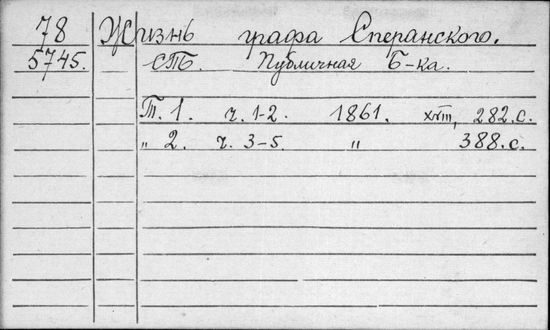 78 Жизнь графа Сперанского.
5745. СПБ. Публичная Б-ка.
Т. 1. ч. 1-2. 1861. XVIII, 282.с.
„ 2. ч. 3-5. „ 388.с.